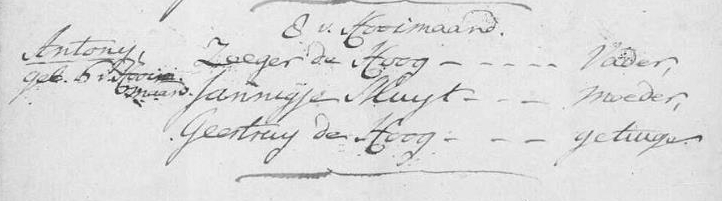 8 v. Hooimaand.
Antony, Zeeger de Hoog - - - - - Vader,
geb. 6 v. Hooimaand. Jannigje Muyt - - - moeder,
Geertruy de Hoog - - - getuige